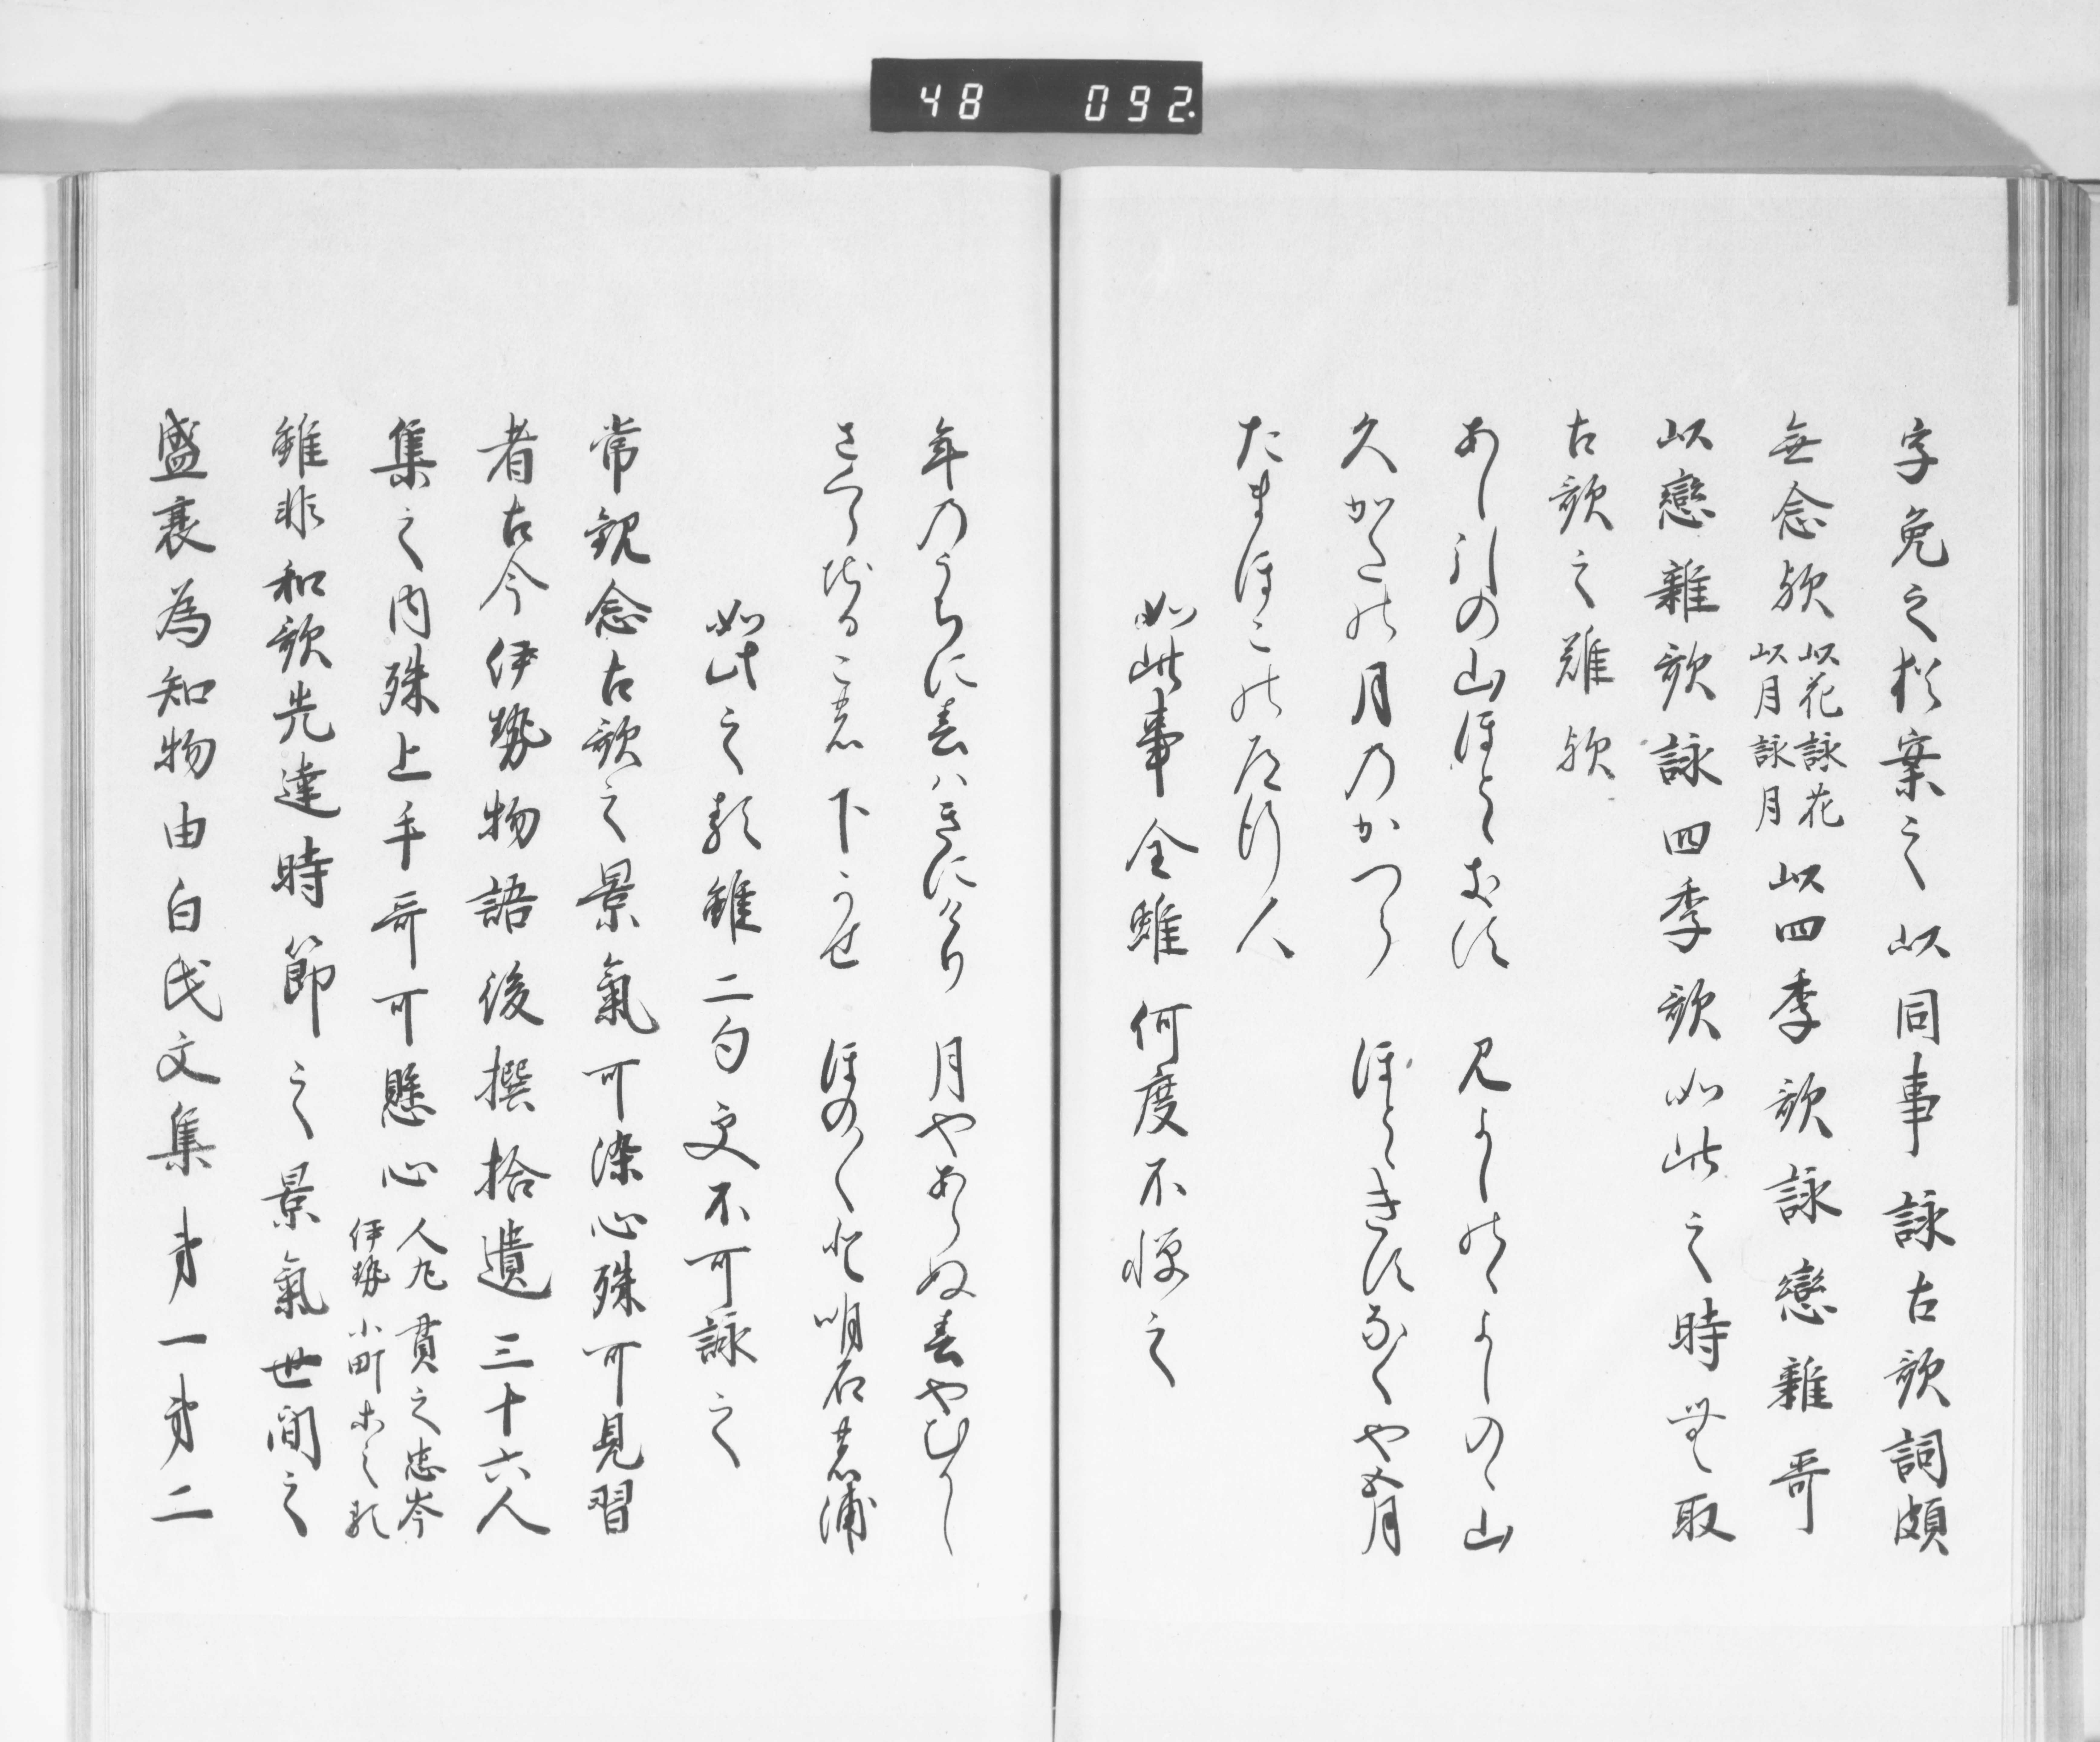 48 092
字免之猶案之以同事詠古歌詞頗
無念歟以花詠花以月詠月以四季歌詠戀雜哥
以戀雜歌詠四季歌如此之時無取
古歌之難歟
あし引の山ほとゝきす 見よしのゝよしのゝ山
久かたの月のかつら ほとゝきすなくや五月
たまほこの道行人
如此事全雖何度不憚之
年のうちに春はきにけり 月やあらぬ春やむかし
さくらちるこの下かせ ほの〱と明石の浦
如此之類雖二句更不可詠之
常観念古歌之景氣可染心殊可見習
者古今伊勢物語後撰拾遺三十六人
集之内殊上手哥可懸心人丸貫之忠岑伊勢小町等之類
雖非和歌先達時節之景氣世間之
盛衰為知物由白氏文集第一第二